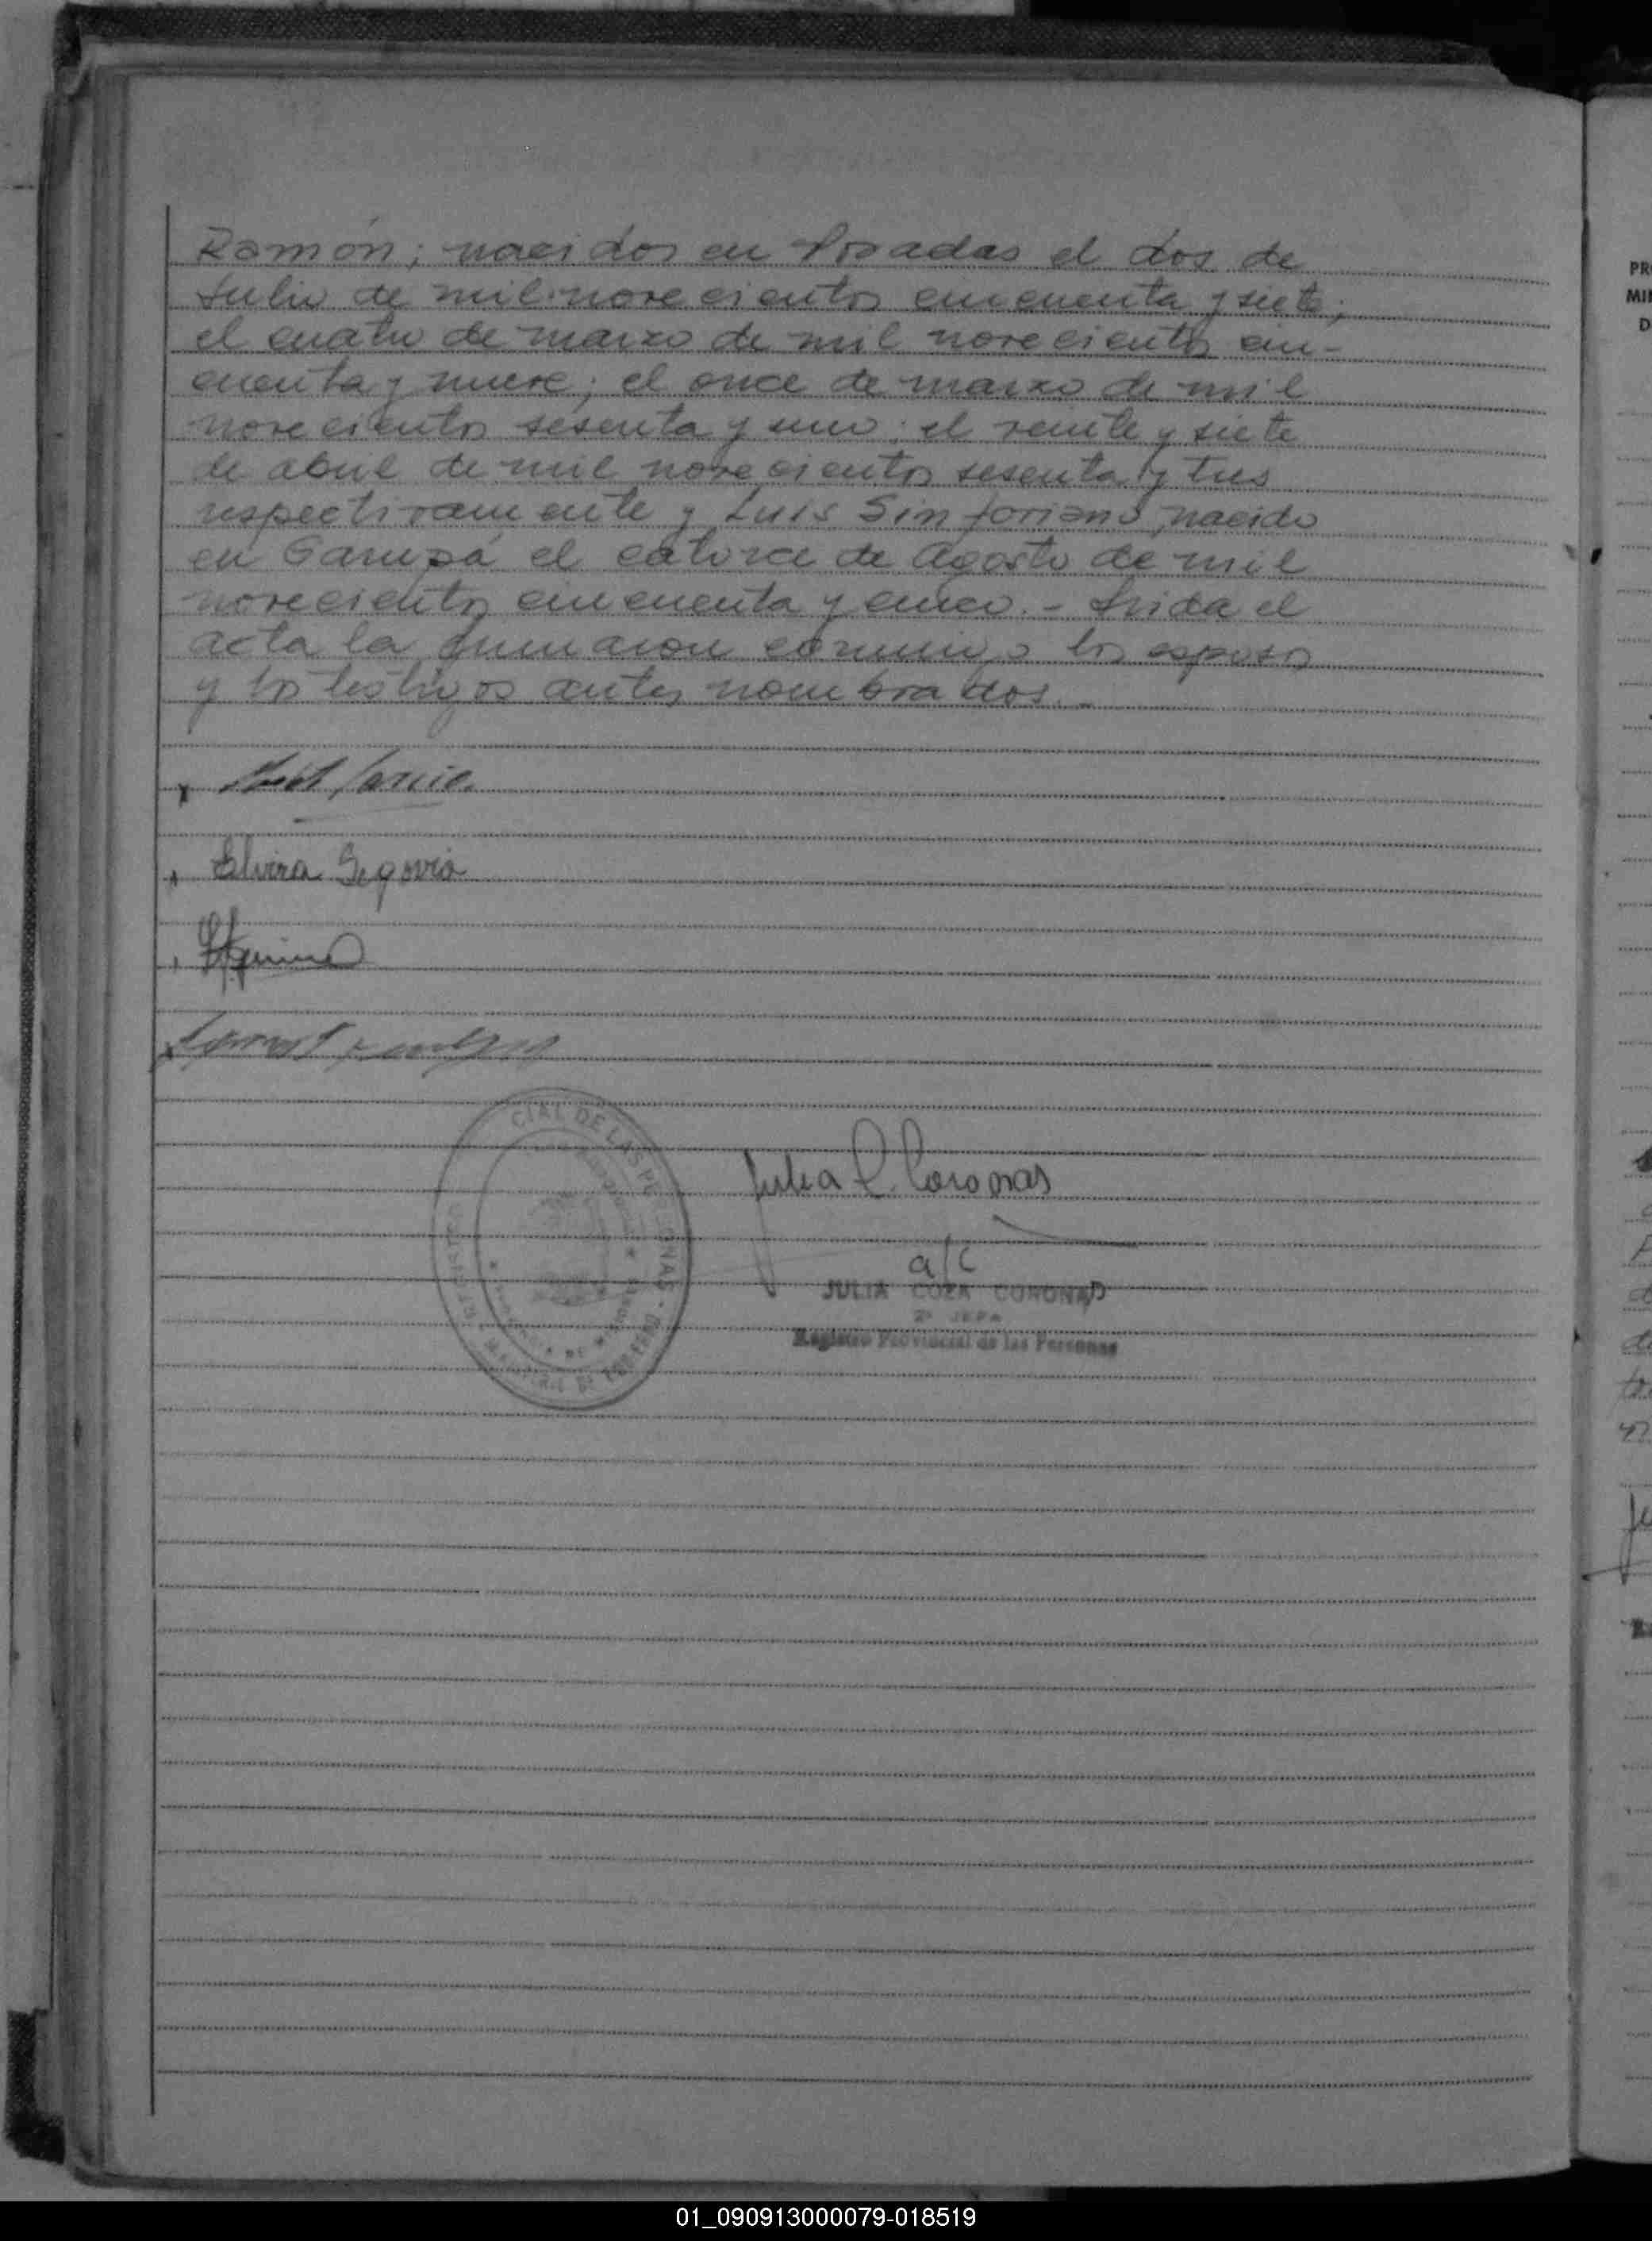 Ramón; nacidos en Posadas el dos de
Julio de mil novecientos cincuenta y siete;
el cuatro de marzo de mil novecientos cin-
cuenta y nueve; el once de marzo de mil
novecientos sesenta y uno; el veinte y siete
de abril de mil novecientos sesenta y tres
respectivamente y Luis Sinforiano, nacido
en Garupá el catorce de Agosto de mil
novecientos cincuenta y cinco.- Leida el
acta la firmaron conmigo los esposos
y los testigos antes nombrados.-
Elvira Segovia
CIAL DE LAS PERSONAS
Julia C. Coronas
a/c
JULIA COZA CORONAD
2º JEFA
Registro Provincial de las Personas
PR
MI
D
01_090913000079-018519